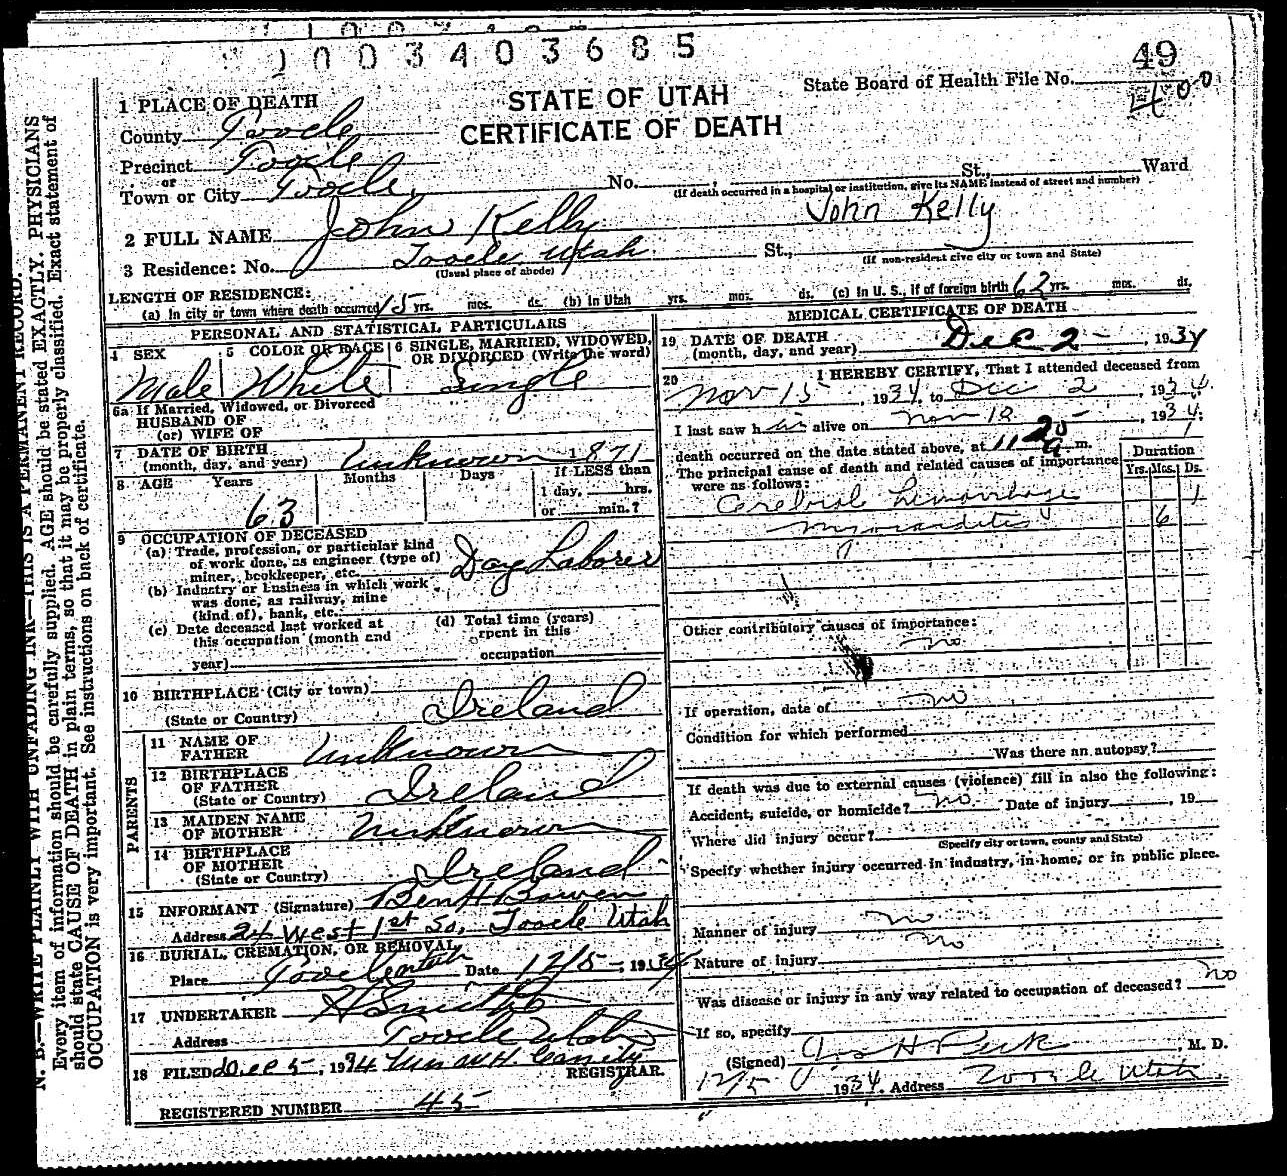 1003403685
49
State Board of Health File No.
400
STATE OF UTAH
CERTIFICATE OF DEATH
1 PLACE OF DEATH
County Tooele
Precinct Tooele
or
Town or City Tooele, No. St., Ward
(If death occurred in a hospital or institution, give its NAME instead of street and number)
2 FULL NAME John Kelly John Kelly
3 Residence: No. Tooele, Utah St.,
(Usual place of abode) (If non-resident give city or town and State)
LENGTH OF RESIDENCE:
(a) In city or town where death occurred 15 yrs. mos. ds. (b) In Utah yrs. mos. ds. (c) In U. S., if of foreign birth 62 yrs. mos. ds.
PERSONAL AND STATISTICAL PARTICULARS
4 SEX 5 COLOR OR RACE 6 SINGLE, MARRIED, WIDOWED,
OR DIVORCED (Write the word)
Male White Single
6a If Married, Widowed, or Divorced
HUSBAND OF
(or) WIFE OF
7 DATE OF BIRTH
(month, day, and year) Unknown 1871
8 AGE Years Months Days If LESS than
1 day, hrs.
or min.?
63
9 OCCUPATION OF DECEASED
(a) Trade, profession, or particular kind
of work done, as engineer (type of)
miner, bookkeeper, etc. Day Laborer
(b) Industry or business in which work
was done, as railway, mine
(kind of), bank, etc.
(c) Date deceased last worked at
this occupation (month and
year)
(d) Total time (years)
spent in this
occupation
10 BIRTHPLACE (City or town)
(State or Country) Ireland
PARENTS
11 NAME OF
FATHER Unknown
12 BIRTHPLACE
OF FATHER
(State or Country) Ireland
13 MAIDEN NAME
OF MOTHER Unknown
14 BIRTHPLACE
OF MOTHER
(State or Country) Ireland
15 INFORMANT (Signature) Ben H Bowen
Address 24 West 1st So, Tooele Utah
16 BURIAL, CREMATION, OR REMOVAL
Place Tooele Date 12/5, 1934
17 UNDERTAKER
Address Tooele Utah
18 FILED Dec 5, 1934 Mrs W. H. Cassity
REGISTRAR.
REGISTERED NUMBER 45
MEDICAL CERTIFICATE OF DEATH
19 DATE OF DEATH
(month, day, and year) Dec 2 -, 1934
20 I HEREBY CERTIFY, That I attended deceased from
Nov 15, 1934, to Dec 2, 1934.
I last saw him alive on Nov 18, 1934;
death occurred on the date stated above, at 11 20 a m.
The principal cause of death and related causes of importance
were as follows:
Duration
Yrs. Mos. Ds.
Cerebral hemorrhage 1
Myocarditis 6
Other contributory causes of importance:
no
If operation, date of no
Condition for which performed
Was there an autopsy?
If death was due to external causes (violence) fill in also the following:
Accident, suicide, or homicide? no Date of injury, 19
Where did injury occur?
(Specify city or town, county and State)
Specify whether injury occurred in industry, in home, or in public place.
Manner of injury no
Nature of injury no
Was disease or injury in any way related to occupation of deceased? no
If so, specify
(Signed) Jos H Peck, M. D.
12/5 1934. Address Tooele Utah
N. B.—WRITE PLAINLY WITH UNFADING INK—THIS IS A PERMANENT RECORD.
Every item of information should be carefully supplied. AGE should be stated EXACTLY. PHYSICIANS
should state CAUSE OF DEATH in plain terms, so that it may be properly classified. Exact statement of
OCCUPATION is very important. See instructions on back of certificate.